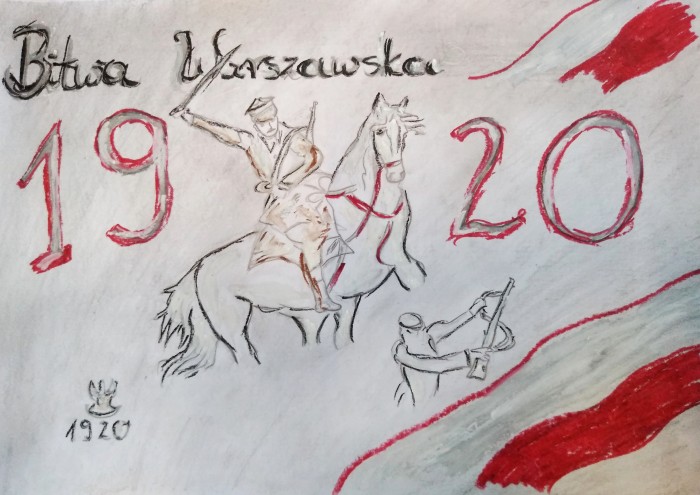 Bitwa Warszawska
1920
1920